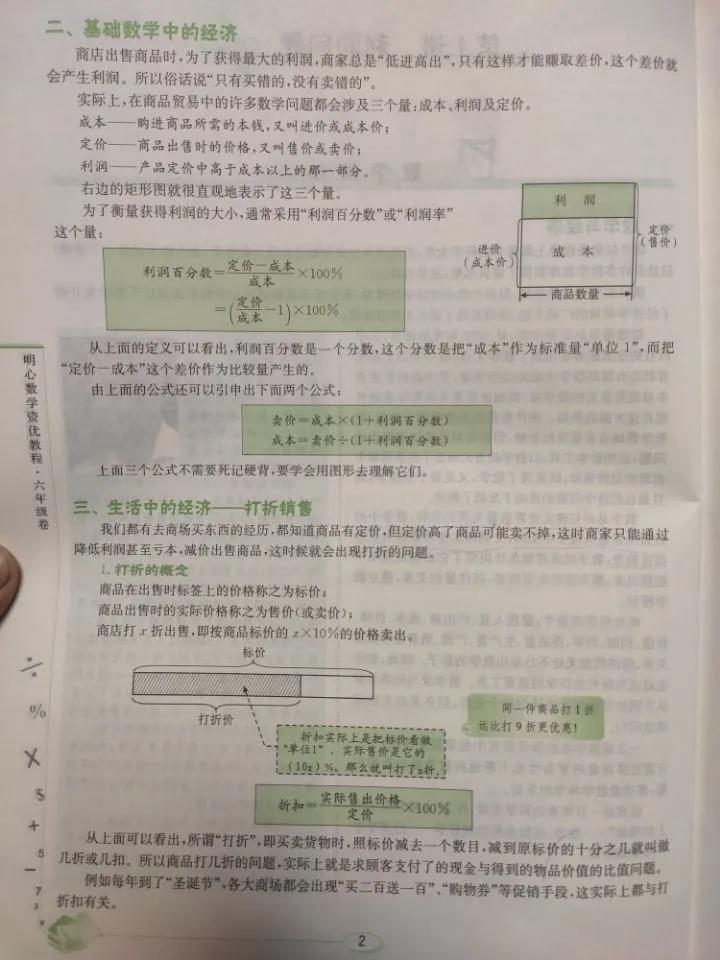 二、基础数学中的经济
商店出售商品时,为了获得最大的利润,商家总是“低进高出”,只有这样才能赚取差价,这个差价就
会产生利润。所以俗话说“只有买错的,没有卖错的”。
实际上,在商品贸易中的许多数学问题都会涉及三个量:成本、利润及定价。
成本——购进商品所需的本钱,又叫进价或成本价;
定价——商品出售时的价格,又叫售价或卖价;
利润——产品定价中高于成本以上的那一部分。
右边的矩形图就很直观地表示了这三个量。
为了衡量获得利润的大小,通常采用“利润百分数”或“利润率”
这个量:
利润
成本
进价
(成本价)
定价
(售价)
商品数量
利润百分数=定价-成本/成本×100%
=(定价/成本-1)×100%
从上面的定义可以看出,利润百分数是一个分数,这个分数是把“成本”作为标准量“单位1”,而把
“定价-成本”这个差价作为比较量产生的。
由上面的公式还可以引申出下面两个公式:
卖价=成本×(1+利润百分数)
成本=卖价÷(1+利润百分数)
上面三个公式不需要死记硬背,要学会用图形去理解它们。
三、生活中的经济——打折销售
我们都有去商场买东西的经历,都知道商品有定价,但定价高了商品可能卖不掉,这时商家只能通过
降低利润甚至亏本,减价出售商品,这时候就会出现打折的问题。
1. 打折的概念
商品在出售时标签上的价格称之为标价;
商品出售时的实际价格称之为售价(或卖价);
商店打x折出售,即按商品标价的x×10%的价格卖出。
标价
打折价
同一件商品打1折
远比打9折更优惠!
折扣实际上是把标价看做
“单位1”,实际售价是它的
(10x)%,那么就叫打了x折,
折扣=实际售出价格/定价×100%
从上面可以看出,所谓“打折”,即买卖货物时,照标价减去一个数目,减到原标价的十分之几就叫做
几折或几扣。所以商品打几折的问题,实际上就是求顾客支付了的现金与得到的物品价值的比值问题。
例如每年到了“圣诞节”,各大商场都会出现“买二百送一百”、“购物券”等促销手段,这实际上都与打
折扣有关。
明心数学资优教程·六年级卷
÷
%
×
$
+
5
-
7
2